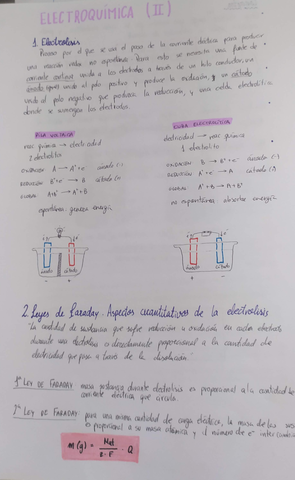 ELECTROQUÍMICA (II)
1. Electrolisis
Proceso por el que se usa el paso de la corriente eléctrica para producir
una reacción redox no espontánea. Para esto se necesita una fuente de
corriente continua unida a los electrodos a través de un hilo conductor, un
ánodo, unido al polo positivo y produce la oxidación, y un cátodo
unido al polo negativo que produce la reducción, y una celda electrolítica
donde se sumergen los electrodos.
PILA VOLTAICA
reac. química → electricidad
2 electrolitos
OXIDACIÓN A → A⁺ + e⁻ ánodo (-)
REDUCCIÓN B⁺ + e⁻ → B cátodo (+)
GLOBAL A + B⁺ → A⁺ + B
espontánea, genera energía
ánodo cátodo
CUBA ELECTROLÍTICA
electricidad → reac. química
1 electrolito
OXIDACIÓN B → B⁺ + e⁻ ánodo (+)
REDUCCIÓN A⁺ + e⁻ → A cátodo (-)
GLOBAL A⁺ + B → A + B⁺
no espontánea, absorbe energía
ánodo cátodo
2. Leyes de Faraday. Aspectos cuantitativos de la electrolisis
"La cantidad de sustancia que sufre reducción u oxidación en cada electrodo
durante una electrolisis es directamente proporcional a la cantidad de
electricidad que pasa a través de la disolución."
1ª LEY DE FARADAY: masa depositada durante electrolisis es proporcional a la cantidad de
corriente eléctrica que circula.
2ª LEY DE FARADAY: para una misma cantidad de carga eléctrica, la masa de las
es proporcional a su masa atómica y el número de e⁻ intercambia
m(g) = · Q